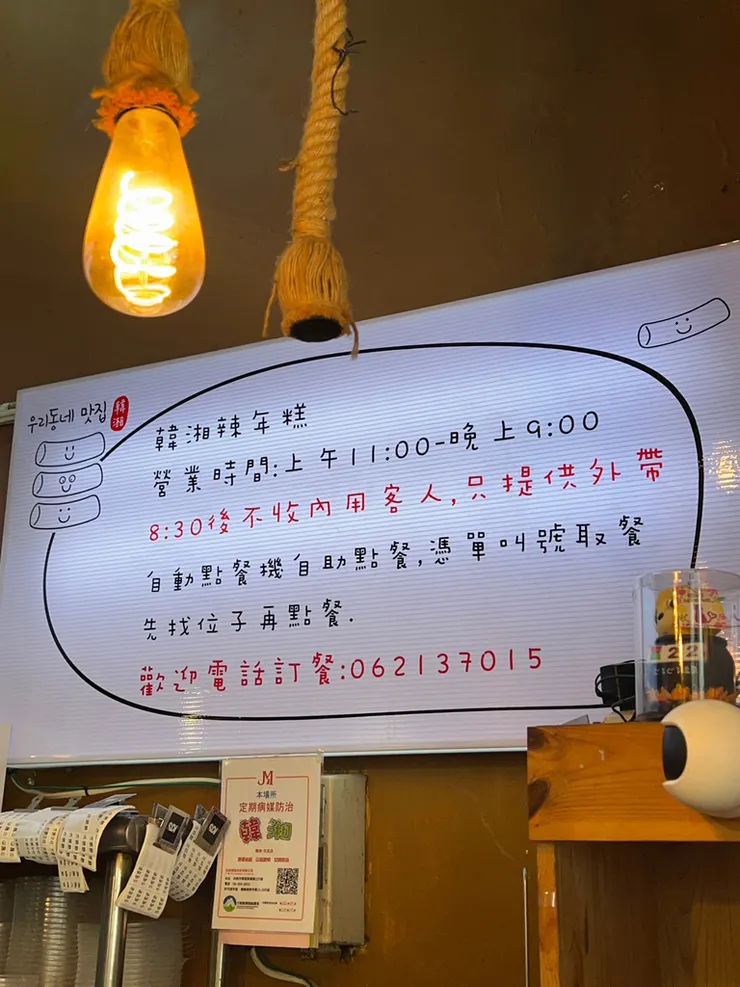 우리동네 맛집
韓湘
韓湘辣年糕
營業時間:上午11:00-晚上9:00
8:30後不收內用客人,只提供外帶
自動點餐機自助點餐,憑單叫號取餐
先找位子再點餐.
歡迎電話訂餐:062137015
JM
本場所
定期病媒防治
韓湘